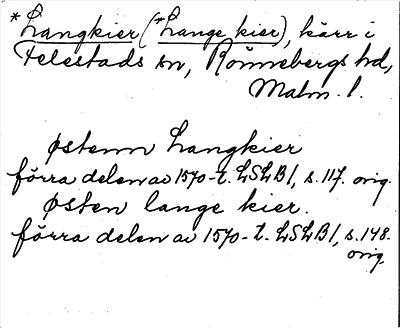 *Langkier (*Lange kier), kärr i
Felestads sn, Rönnebergs hd,
Malm. l.
Østenn Langkier
förra delen av 1570-t. LSLB 1, s. 117. orig.
Østen lange kier.
förra delen av 1570-t. LSLB 1, s. 148.
orig.